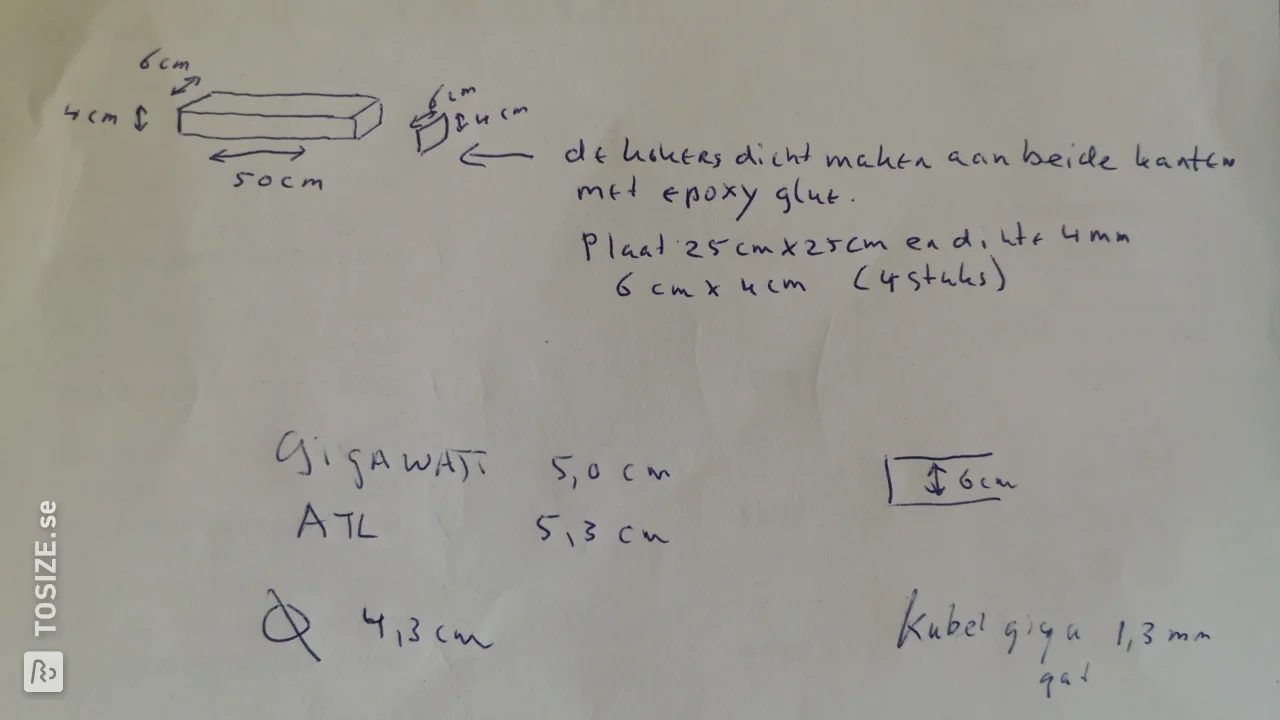 6cm
4cm
50cm
6cm
4cm
de kokers dicht maken aan beide kanten
met epoxy glue.
Plaat 25cm x 25cm en dikte 4mm
6 cm x 4cm (4 stuks)
GigAWATT 5,0 cm
ATL 5,3 cm
6cm
Ø 4,3cm
Kabel giga 1,3mm
gat
TOSIZE.se